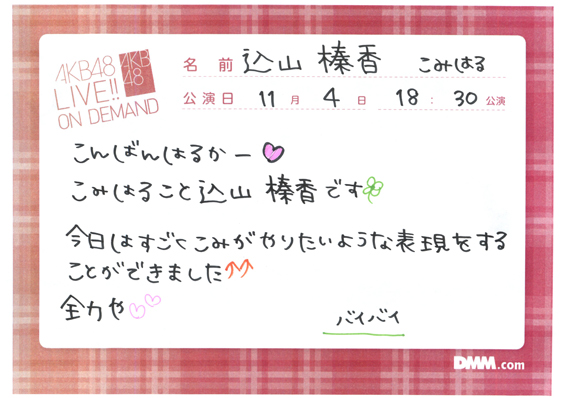 AKB48
LIVE!!
ON DEMAND
AKB
48
名前 込山 榛香 こみはる
公演日 11月 4日 18:30公演
こんばんはるかー
こみはること込山 榛香です
今日はすごくこみがやりたいような表現をする
ことができました
全力や
バイバイ
DMM.com